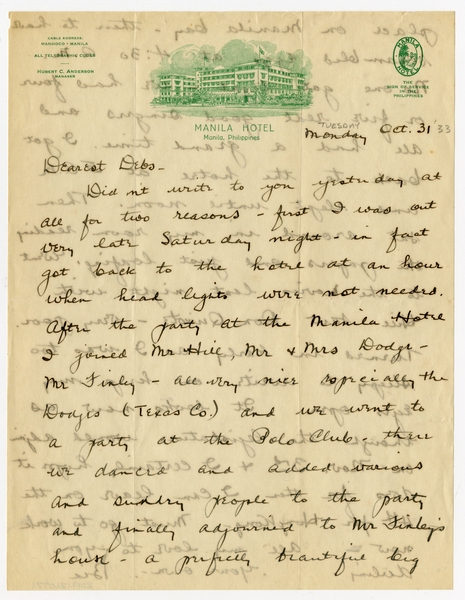 CABLE ADDRESS,
MANHOCO - MANILA
ALL TELEGRAPHIC CODES
HUBERT C. ANDERSON
MANAGER
MANILA HOTEL
Manila, Philippines
MANILA HOTEL
THE
SIGN OF SERVICE
IN THE
PHILIPPINES
TUESDAY
Monday Oct. 31 '33
Dearest Debs-
Didn't write to you yesterday at
all for two reasons - first I was out
very late Saturday night - in fact
got back to the hotel at an hour
when head lights were not needed.
After the party at the Manila Hotel
I joined Mr Hill, Mr & Mrs Dodge -
Mr Finley - all very nice especially the
Dodges (Texas Co.) and we went to
a party at the Polo Club - there
we danced and added various
and sundry people to the party
and finally adjourned to Mr Finley's
house - a perfectly beautiful big